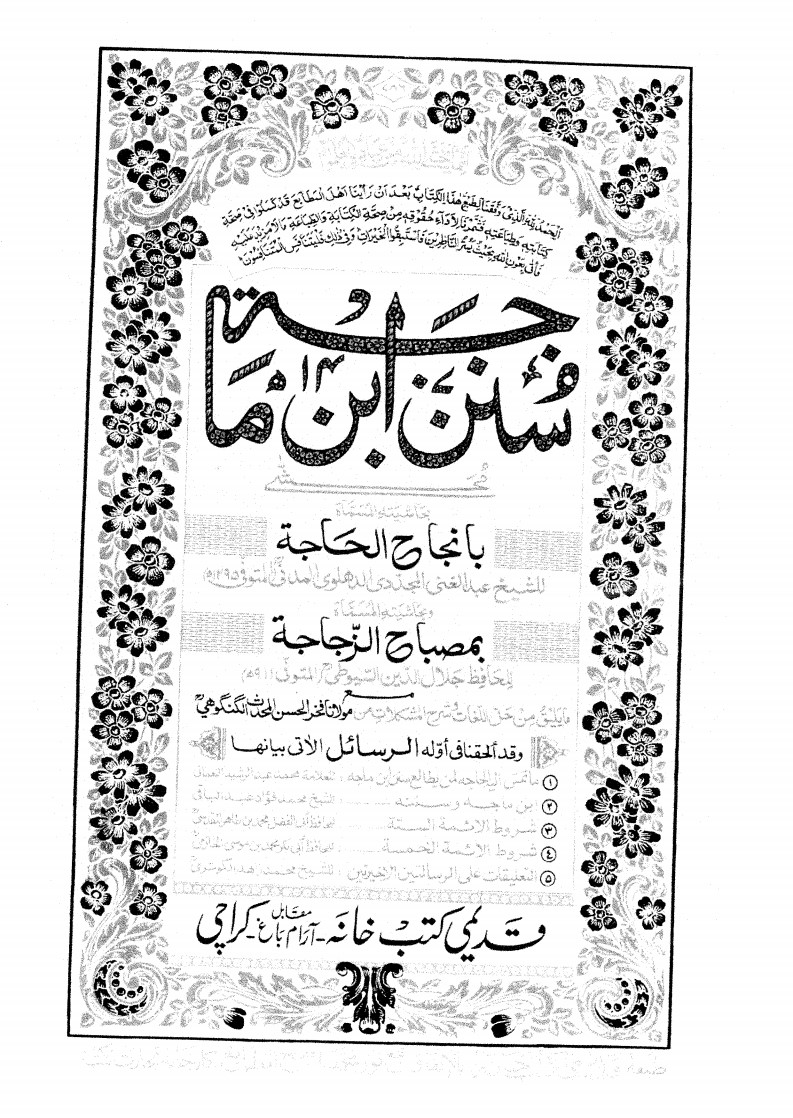 الحمد لله الذي وفقنا لطبع هذا الكتاب بعد ان رأينا اهل المطابع قد كسلوا في صحة
كتابته وطباعته فشمرنا لاداء حقوقه من صحة الكتابة والطباعة
فأتى بعون الله بحيث يسر الناظرين فاستبقوا الخيرات وفي ذلك فليتنافس المتنافسون
سُنن ابن مَاجَة
مُحَشّٰی
بحاشيته المسماة
بانجاح الحَاجة
للشيخ عبد الغنى المجددى الدهلوى المدنى المتوفى ١٢٩٥ھ
وبحاشيته المسماة
بمصباح الزّجاجة
للحافظ جلال الدين السيوطى المتوفى ٩١١ھ
مع
مايليق من حل اللغات وشرح المشكلات من مولانا فخر الحسن المحدث الگنگوهي
وقد ألحقنا فى أوله الرسائل الأتى بيانها
① ماتمس اليه الحاجه لمن يطالع سنن ابن ماجه : للعلامة محمد عبد الرشيد النعمانى
② ابن ماجه وسننه ..... : للشيخ محمد فؤاد عبد الباقى
③ شروط الائمة الستة ..... : للحافظ ابى الفضل محمد بن طاهر المقدسى
④ شروط الائمة الخمسة ..... : للحافظ أبى بكر محمد بن موسى الحازمى
⑤ التعليقات على الرسالتين الاخيرتين : للشيخ محمد زاهد الكوثرى
قدیمی کتب خانَہ - مقابل آرام باغ - کراچی